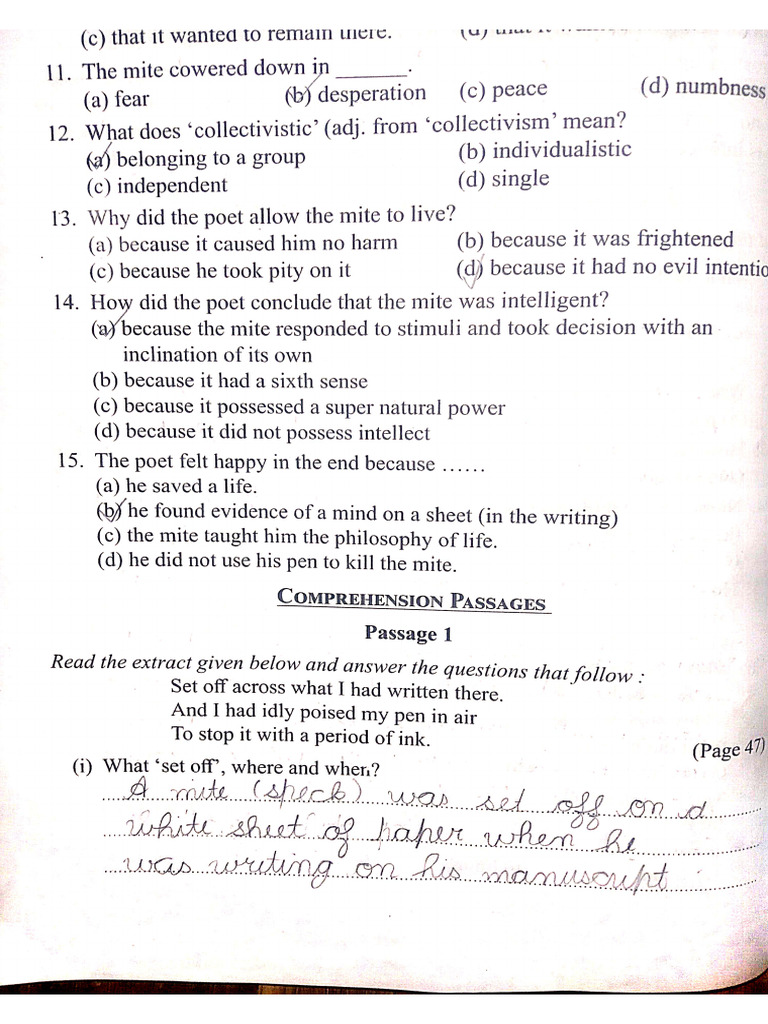 (c) that it wanted to remain there.
11. The mite cowered down in ______.
(a) fear (b) desperation (c) peace (d) numbness
12. What does 'collectivistic' (adj. from 'collectivism' mean?
(a) belonging to a group (b) individualistic
(c) independent (d) single
13. Why did the poet allow the mite to live?
(a) because it caused him no harm (b) because it was frightened
(c) because he took pity on it (d) because it had no evil intentio
14. How did the poet conclude that the mite was intelligent?
(a) because the mite responded to stimuli and took decision with an
inclination of its own
(b) because it had a sixth sense
(c) because it possessed a super natural power
(d) because it did not possess intellect
15. The poet felt happy in the end because ......
(a) he saved a life.
(b) he found evidence of a mind on a sheet (in the writing)
(c) the mite taught him the philosophy of life.
(d) he did not use his pen to kill the mite.
COMPREHENSION PASSAGES
Passage 1
Read the extract given below and answer the questions that follow :
Set off across what I had written there.
And I had idly poised my pen in air
To stop it with a period of ink.
(Page 47)
(i) What 'set off', where and when?
A mite (speck) was set off on a
white sheet of paper when he
was writing on his manuscript